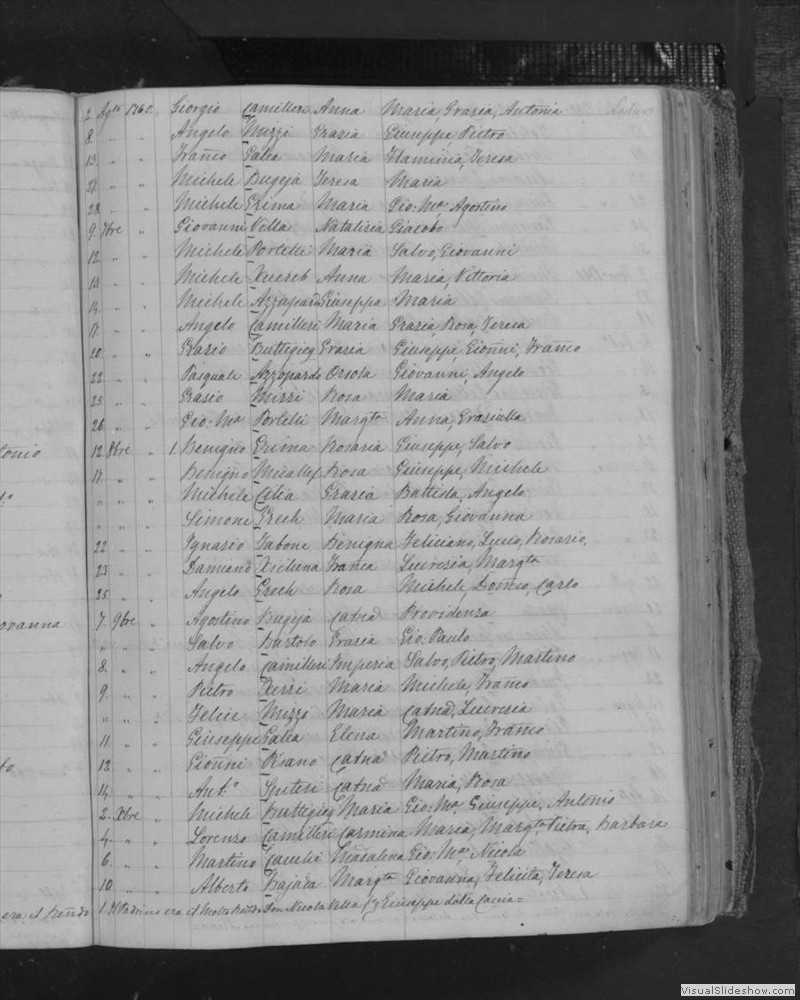 2. Agto 1760. Giorgio Camilleri Anna Maria, Grazia, Antonia
8. " " Angelo Mizzi Grazia Giuseppe, Pietro
13 " " Franco Galea Maria Flaminia, Teresa
21 " " Michele Bugeja Teresa Maria
28 " " Michele Grima Maria Gio: Ma. Agostino
9. 7bre " Giovanni Vella Natalizia Giacobo
12. " " Michele Portelli Maria Salvo, Giovanni
13. " " Michele Xuereb Anna Maria, Vittoria
14. " " Michele Azzopardo Giuseppa Maria
17. " " Angelo Camilleri Maria Grazia, Rosa, Teresa
20. " " Grazio Buttigieg Grazia Giuseppe, Gionni, Franco
22. " " Pasquale Azzopardo Orsola Giovanni, Angelo
25. " " Grazio Mizzi Rosa Maria
26. " " Gio: Ma. Portelli Margta Anna, Graziulla
tonio
12. 8bre " 1. Benigno Grima Rosaria Giuseppe, Salvo
17. " " Benigno Micallef Rosa Giuseppe, Michele
" " " Michele Cilia Grazia Battista, Angelo
" " " Simone Grech Maria Rosa, Giovanna
22 " " Ignazio Tabone Benigna Feliciano, Luca, Rosario,
23 " " Damiano Xicluna Franca Lucrezia, Margta
25. " " Angelo Grech Rosa Michele, Domco, Carlo
ovanna
7. 9bre " Agostino Bugeja Catna Providenza
" " " Salvo Bartolo Grazia Gio: Paulo
8. " " Angelo Camilleri Imperia Salvo, Pietro, Martino
9. " " Pietro Xerri Maria Michele, Franco
" " " Felice Mizzi Maria Catna, Lucrezia
11 " " Giuseppe Galea Elena Martino, Franco
12 " " Gionni Pisano Catna Pietro, Martino
14. " " Anto. Spiteri Catna Maria, Rosa
2. Xbre " Michele Buttigieg Maria Gio: Ma. Giuseppe, Antonio
4. " " Lorenzo Camilleri Carmina Maria, Margta Pietra, Barbara
6. " " Martino Cauchi Madalena Gio: Ma. Nicola
10. " " Alberto Hajada Margta Giovanna, Felicita, Teresa
era il Rendo
1. Il Padrino era il Molto Rendo Don Nicola Vella fq Giuseppe della Cacia
VisualSlideshow.com